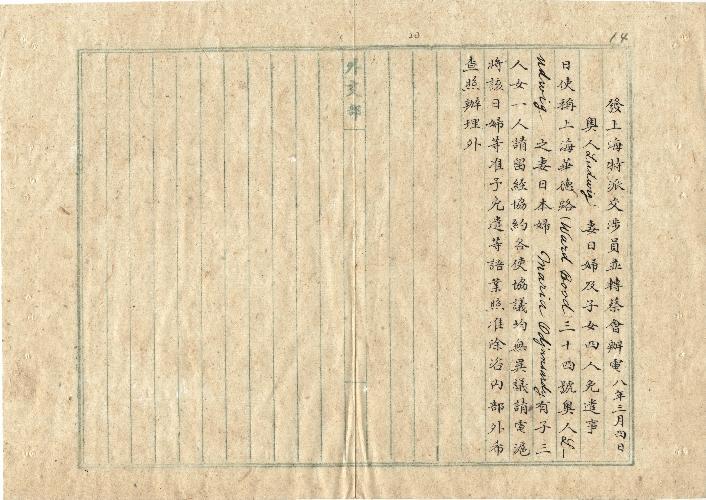 14
20
發上海特派交涉員並轉蔡會辦電八年三月四日
奧人Ludwig 妻日婦及子女四人免遣事
日使稱上海華德路(Ward Rood)三十四號奧人
udwig 之妻日本婦 Maria 有子三
人女一人請留經協約各使協議均無異議請電滬
將該日婦等准予免遣等語業照准除咨內部外希
查照辦理外
外交部